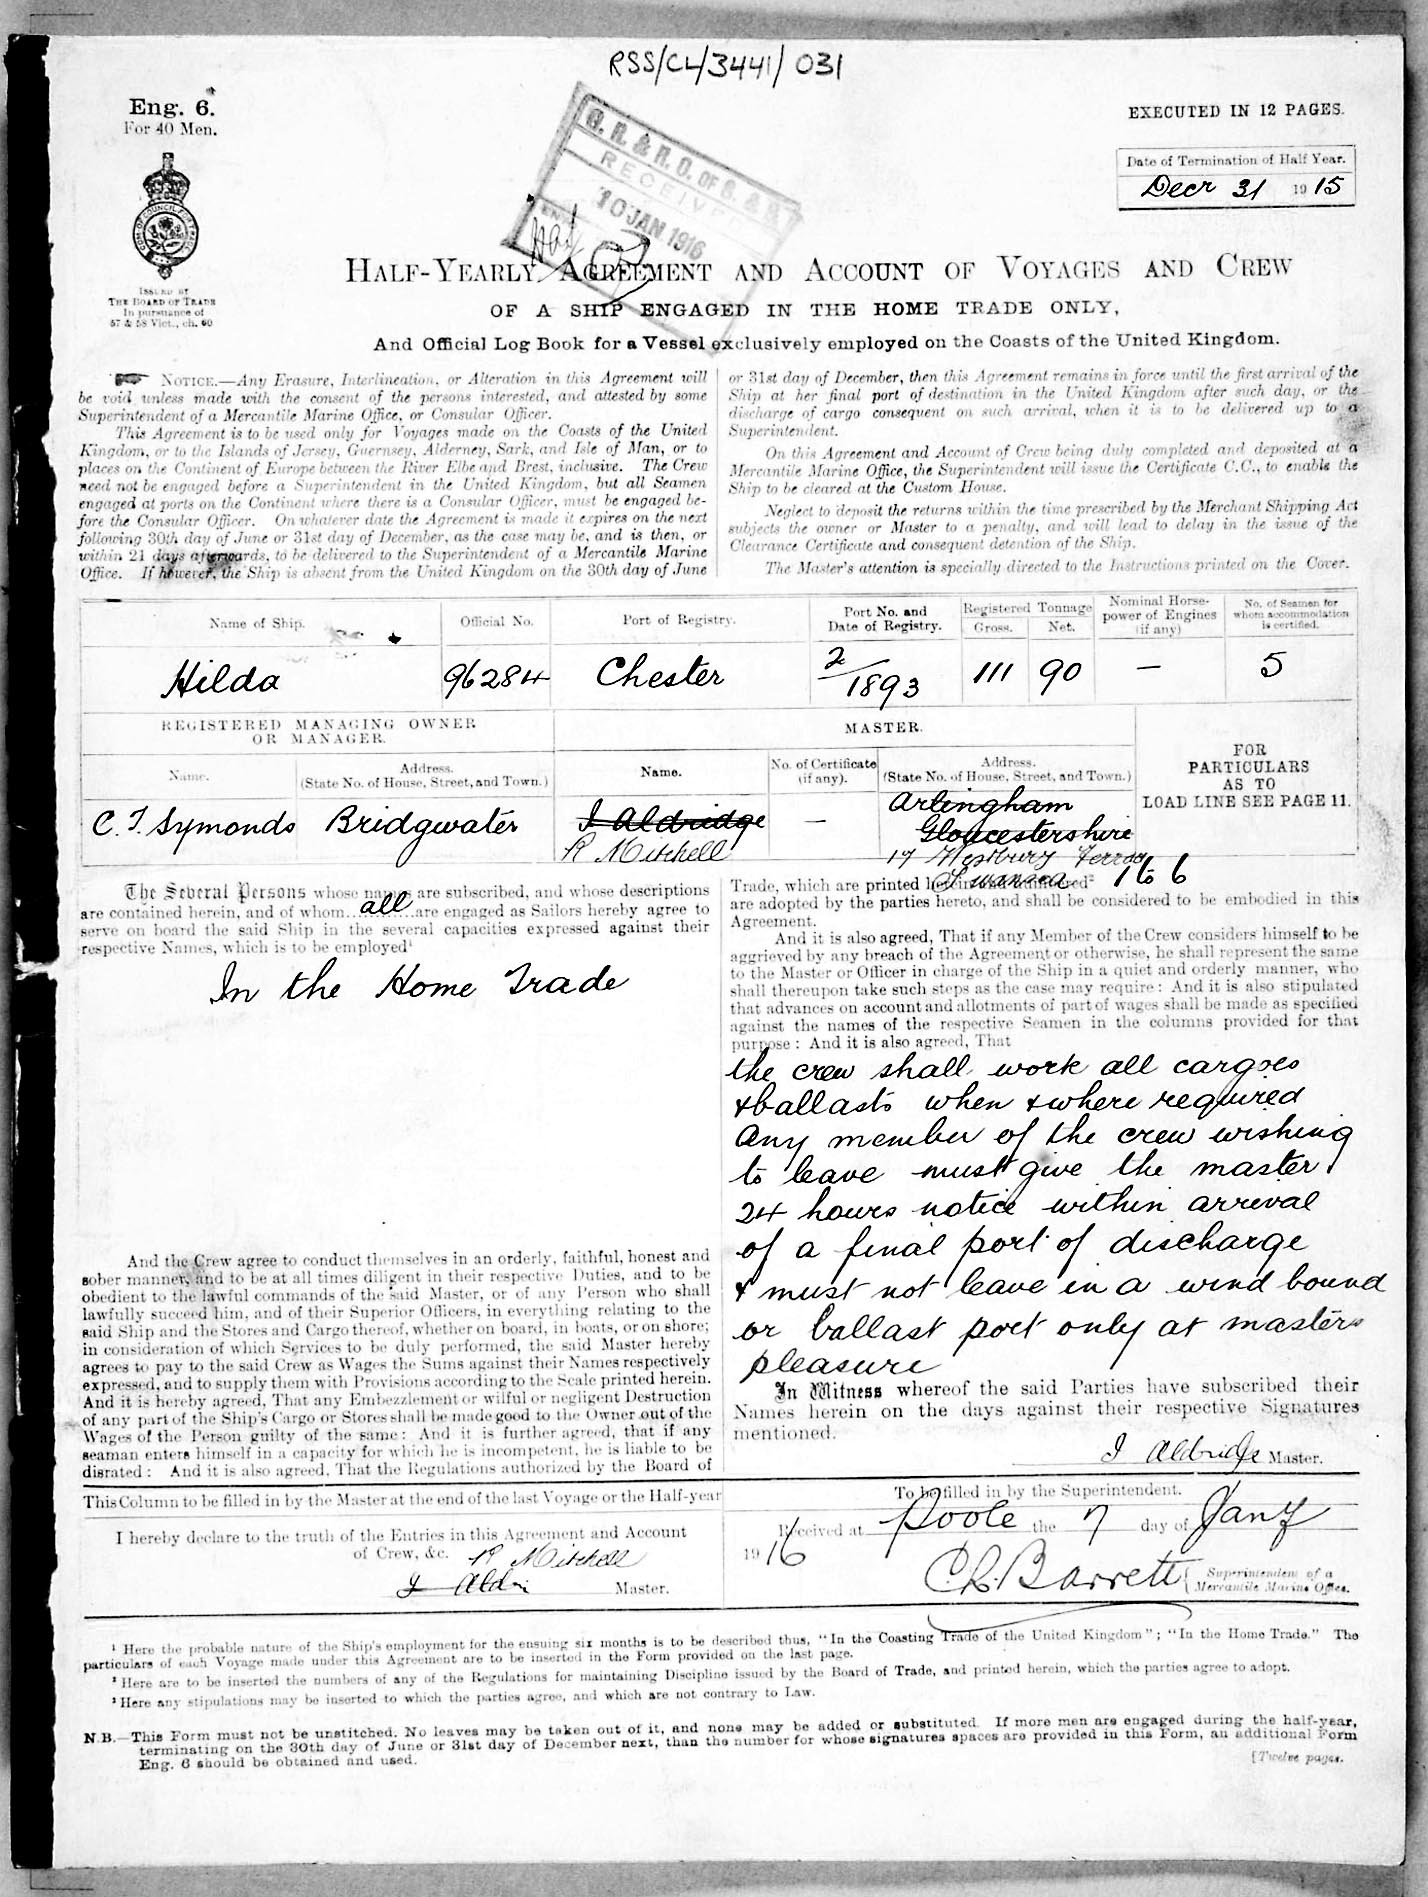 RSS/CL/3441/031
Eng. 6.
For 40 Men.
EXECUTED IN 12 PAGES.
Date of Termination of Half Year.
Decr 31 1915
ISSUED BY
THE BOARD OF TRADE
In pursuance of
57 & 58 Vict., ch. 60
RECEIVED
10 JAN 1916
HALF-YEARLY AGREEMENT AND ACCOUNT OF VOYAGES AND CREW
OF A SHIP ENGAGED IN THE HOME TRADE ONLY,
And Official Log Book for a Vessel exclusively employed on the Coasts of the United Kingdom.
NOTICE.—Any Erasure, Interlineation, or Alteration in this Agreement will
be void unless made with the consent of the persons interested, and attested by some
Superintendent of a Mercantile Marine Office, or Consular Officer.
This Agreement is to be used only for Voyages made on the Coasts of the United
Kingdom, or to the Islands of Jersey, Guernsey, Alderney, Sark, and Isle of Man, or to
places on the Continent of Europe between the River Elbe and Brest, inclusive. The Crew
need not be engaged before a Superintendent in the United Kingdom, but all Seamen
engaged at ports on the Continent where there is a Consular Officer, must be engaged be-
fore the Consular Officer. On whatever date the Agreement is made it expires on the next
following 30th day of June or 31st day of December, as the case may be, and is then, or
within 21 days afterwards, to be delivered to the Superintendent of a Mercantile Marine
Office. If however, the Ship is absent from the United Kingdom on the 30th day of June
or 31st day of December, then this Agreement remains in force until the first arrival of the
Ship at her final port of destination in the United Kingdom after such day, or the
discharge of cargo consequent on such arrival, when it is to be delivered up to a
Superintendent.
On this Agreement and Account of Crew being duly completed and deposited at a
Mercantile Marine Office, the Superintendent will issue the Certificate C.C., to enable the
Ship to be cleared at the Custom House.
Neglect to deposit the returns within the time prescribed by the Merchant Shipping Act
subjects the owner or Master to a penalty, and will lead to delay in the issue of the
Clearance Certificate and consequent detention of the Ship.
The Master's attention is specially directed to the Instructions printed on the Cover.
Name of Ship. Official No. Port of Registry. Port No. and Date of Registry. Registered Tonnage Gross. Net. Nominal Horse-power of Engines (if any) No. of Seamen for whom accommodation is certified.
Hilda 96284 Chester 2/1893 111 90 — 5
REGISTERED MANAGING OWNER
OR MANAGER.
MASTER.
Name. Address. (State No. of House, Street, and Town.) Name. No. of Certificate (if any). Address. (State No. of House, Street, and Town.)
FOR
PARTICULARS
AS TO
LOAD LINE SEE PAGE 11.
C. T. Symonds Bridgwater I Aldridge — Arlingham
Gloucestershire
R Mitchell 17 Westbury Terrace
Swansea
The Several Persons whose names are subscribed, and whose descriptions
are contained herein, and of whom all are engaged as Sailors hereby agree to
serve on board the said Ship in the several capacities expressed against their
respective Names, which is to be employed¹
In the Home Trade
And the Crew agree to conduct themselves in an orderly, faithful, honest and
sober manner, and to be at all times diligent in their respective Duties, and to be
obedient to the lawful commands of the said Master, or of any Person who shall
lawfully succeed him, and of their Superior Officers, in everything relating to the
said Ship and the Stores and Cargo thereof, whether on board, in boats, or on shore;
in consideration of which Services to be duly performed, the said Master hereby
agrees to pay to the said Crew as Wages the Sums against their Names respectively
expressed, and to supply them with Provisions according to the Scale printed herein.
And it is hereby agreed, That any Embezzlement or wilful or negligent Destruction
of any part of the Ship's Cargo or Stores shall be made good to the Owner out of the
Wages of the Person guilty of the same: And it is further agreed, that if any
seaman enters himself in a capacity for which he is incompetent, he is liable to be
disrated: And it is also agreed, That the Regulations authorized by the Board of
Trade, which are printed herein and numbered² 1 to 6
are adopted by the parties hereto, and shall be considered to be embodied in this
Agreement.
And it is also agreed, That if any Member of the Crew considers himself to be
aggrieved by any breach of the Agreement or otherwise, he shall represent the same
to the Master or Officer in charge of the Ship in a quiet and orderly manner, who
shall thereupon take such steps as the case may require: And it is also stipulated
that advances on account and allotments of part of wages shall be made as specified
against the names of the respective Seamen in the columns provided for that
purpose: And it is also agreed, That
the crew shall work all cargoes
& ballasts when & where required
any member of the crew wishing
to leave must give the master
24 hours notice within arrival
of a final port of discharge
& must not leave in a wind bound
or ballast port only at masters
pleasure
In Witness whereof the said Parties have subscribed their
Names herein on the days against their respective Signatures
mentioned.
I Aldridge Master.
This Column to be filled in by the Master at the end of the last Voyage or the Half-year
I hereby declare to the truth of the Entries in this Agreement and Account
of Crew, &c. R Mitchell
I Aldri Master.
To be filled in by the Superintendent.
Received at Poole the 7 day of Jany
1916
C. R. Barrett Superintendent of a
Mercantile Marine Office.
¹ Here the probable nature of the Ship's employment for the ensuing six months is to be described thus, "In the Coasting Trade of the United Kingdom"; "In the Home Trade." The
particulars of each Voyage made under this Agreement are to be inserted in the Form provided on the last page.
² Here are to be inserted the numbers of any of the Regulations for maintaining Discipline issued by the Board of Trade, and printed herein, which the parties agree to adopt.
³ Here any stipulations may be inserted to which the parties agree, and which are not contrary to Law.
N.B.—This Form must not be unstitched. No leaves may be taken out of it, and none may be added or substituted. If more men are engaged during the half-year,
terminating on the 30th day of June or 31st day of December next, than the number for whose signatures spaces are provided in this Form, an additional Form
Eng. 6 should be obtained and used.
[Twelve pages.